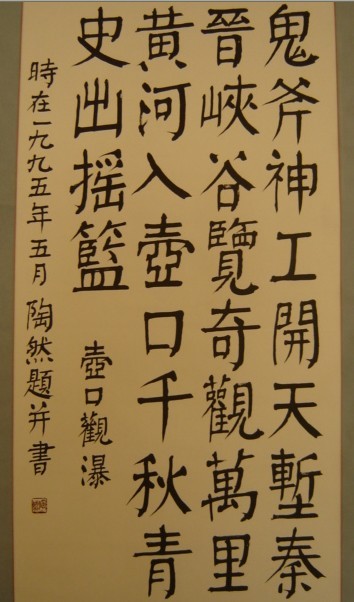 鬼斧神工開天塹秦
晉峽谷覽奇觀萬里
黃河入壺口千秋青
史出摇籃
壺口觀瀑
時在一九九五年五月陶然題并書